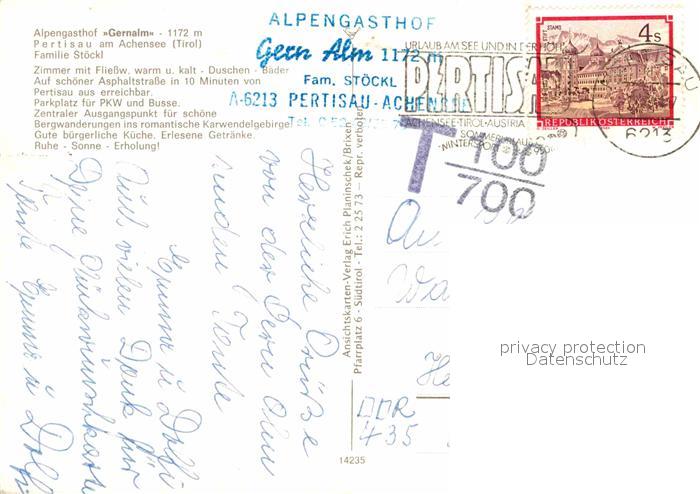 Alpengasthof »Gernalm« - 1172 m
Pertisau am Achensee (Tirol)
Familie Stöckl
Zimmer mit Fließw. warm u. kalt - Duschen - Bäder
Auf schöner Asphaltstraße in 10 Minuten von
Pertisau aus erreichbar.
Parkplatz für PKW und Busse.
Zentraler Ausgangspunkt für schöne
Bergwanderungen ins romantische Karwendelgebirge!
Gute bürgerliche Küche. Erlesene Getränke.
Ruhe - Sonne - Erholung!
ALPENGASTHOF
Gern Alm 1172 m
Fam. STÖCKL
A-6213 PERTISAU-ACHENSEE
Tel.
URLAUB AM SEE UND IN DER HÖH
PERTISA
ACHENSEE-TIROL-AUSTRIA
SOMMERURLAUB
WINTERSPORT
4s
STIFT STAMS
REPUBLIK ÖSTERREICH
6213
T 100
700
Herrliche Grüße
von der Gern Alm
senden Tante
Gunne u Dolfi
Auch vielen Dank für
Deine Glückwunschkarte
Tante Gunne u Dolfi
Ansichtskarten-Verlag Erich Planinschek/Brixen
Pfarrplatz 6 - Südtirol - Tel.: 2 25 73 - Repr. verboten
14235
An
Wa
He
DDR
435
privacy protection
Datenschutz